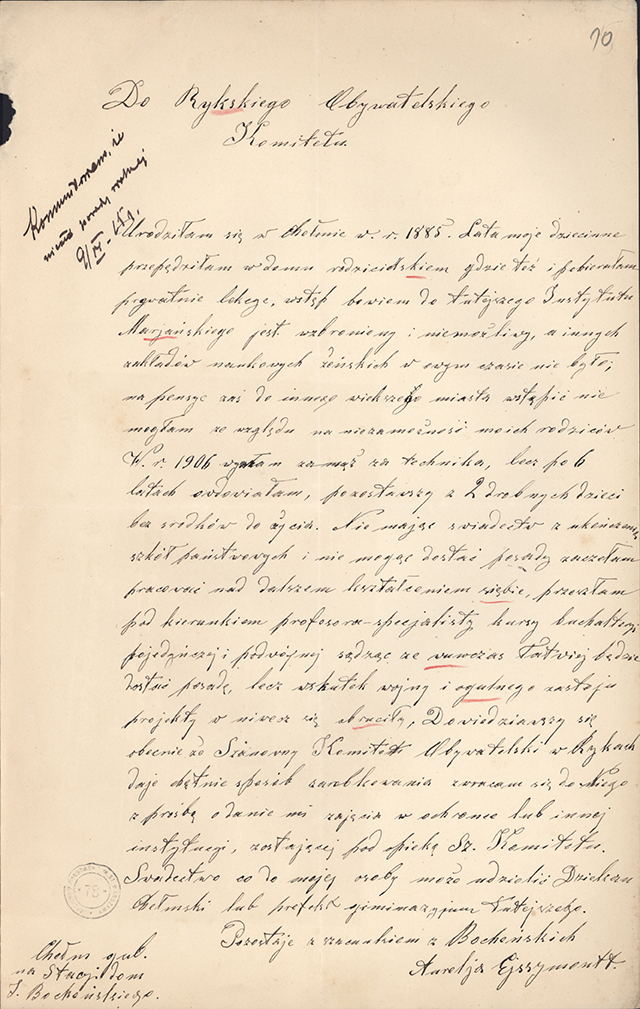 10
Do Rykskiego Obywatelskiego
Komitetu
Komunikowano, że
niema posady wolnej
9/VI - 15 g.
Urodziłam się w Chełmie w. r. 1885. Lata moje dziecinne
przepędziłam w domu rodzicielskiem gdzie też i pobierałam
prywatnie lekcye, wstęp bowiem do tutejszego Instytutu
Marjańskiego jest wzbroniony i niemożliwy, a innych
zakładów naukowych żeńskich w owym czasie nie było;
na pensye zaś do innego większego miasta wstąpić nie
mogłam ze względu na niezamożność moich rodziców
W. r. 1906 wyszłam zamąż za technika, lecz po 6
latach owdowiałam, pozostawszy z 2 drobnych dzieci
bez srodków do życia. Nie mając swiadectw z ukończenia
szkół państwowych i nie mogąc dostać posady zaczełam
pracować nad dalszem kształceniem siębie, przeszłam
pod kierunkiem profesora-specjalisty kursy buchalteryi
pojedyńczej i podwójnej sądząc że wuwczas łatwiej będzie
dostać posadę, lecz wskutek wojny i ogulnego zastoju
projekty w niwecz się obruciły, Dowiedziawszy się
obecnie że Szanowny Komitet Obywatelski w Rykach
daje chętnie sposób zarobkowania zwracam się do Niego
z prosbą o danie mi zajęcia w ochronce lub innej
instytucyi, zostającej pod opieką Sz. Komitetu.
Swadectwo co do mojej osoby może udzielić Dziekan
Chełmski lub prefekt gimnazyjum tutejszego.
Pozostaje z szacunkiem z Bocheńskich
Aurelja Ejszymontt.
Chełm gub.
na Stacyi dom
J. Bocheńskiego.
78